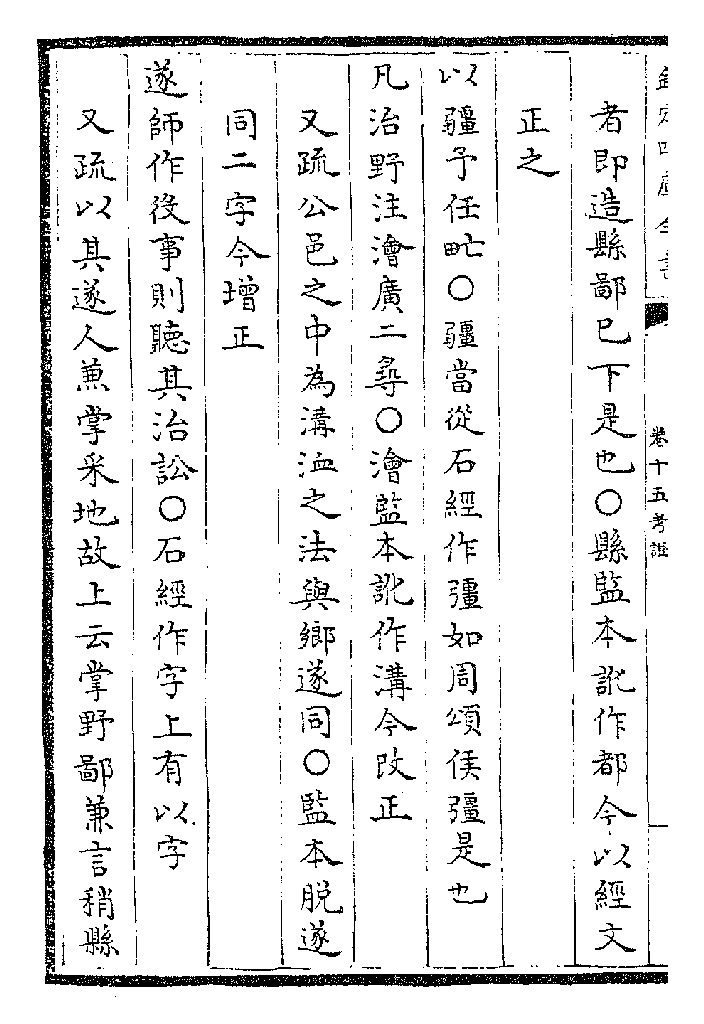 欽定四庫全書
卷十五考證
者即造縣鄙已下是也○縣監本訛作都今以經文
正之
以疆予任甿○疆當從石經作彊如周頌侯彊是也
凡治野注澮廣二尋○澮監本訛作溝今改正
又疏公邑之中為溝洫之法與鄉遂同○監本脫遂
同二字今增正
遂師作役事則聽其治訟○石經作字上有以字
又疏以其遂人兼掌采地故上云掌野鄙兼言稍縣